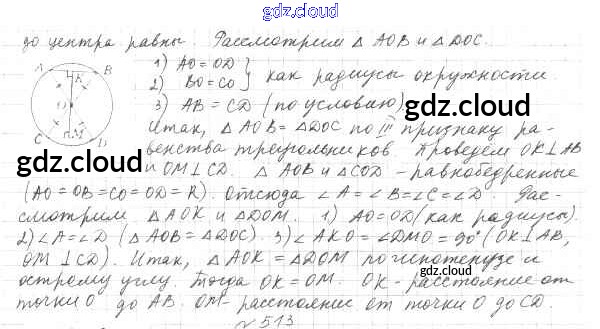 gdz.cloud
до центра равны. Рассмотрим △ AOB и △ DOC.
1) AO = OD
2) BO = CO } как радиусы окружности
3) AB = CD (по условию)
Итак, △ AOB = △ DOC по III признаку ра-
венства треугольников. Проведём OK ⊥ AB
и OM ⊥ CD. △ AOB и △ COD - равнобедренные
(AO = OB = CO = OD = R). Отсюда ∠A = ∠B = ∠C = ∠D. Рас-
смотрим △ AOK и △ DOM. 1) AO = OD (как радиусы).
2) ∠A = ∠D (△ AOB = △ DOC). 3) ∠AKO = ∠DMO = 90° (OK ⊥ AB,
OM ⊥ CD). Итак, △ AOK = △ DOM по гипотенузе и
острому углу. Тогда OK = OM. OK - расстояние от
точки O до AB. OM - расстояние от точки O до CD.
№ 513
A K B
O
C M D
gdz.cloud
gdz.cloud
gdz.cloud
gdz.cloud
gdz.cloud